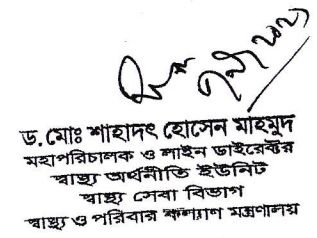 ড.মোঃ শাহাদৎ হোসেন মাহমুদ
মহাপরিচালক ও লাইন ডাইরেক্টর
স্বাস্থ্য অর্থনীতি ইউনিট
স্বাস্থ্য সেবা বিভাগ
স্বাস্থ্য ও পরিবার কল্যাণ মন্ত্রণালয়